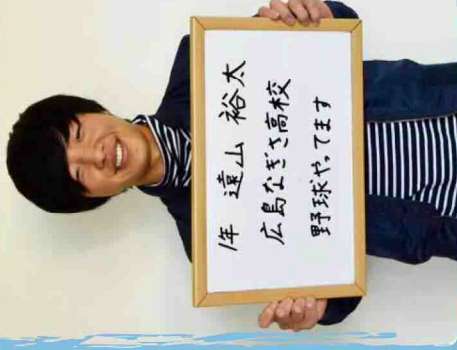 1年 遠山 裕太
広島なぎさ高校
野球やってます